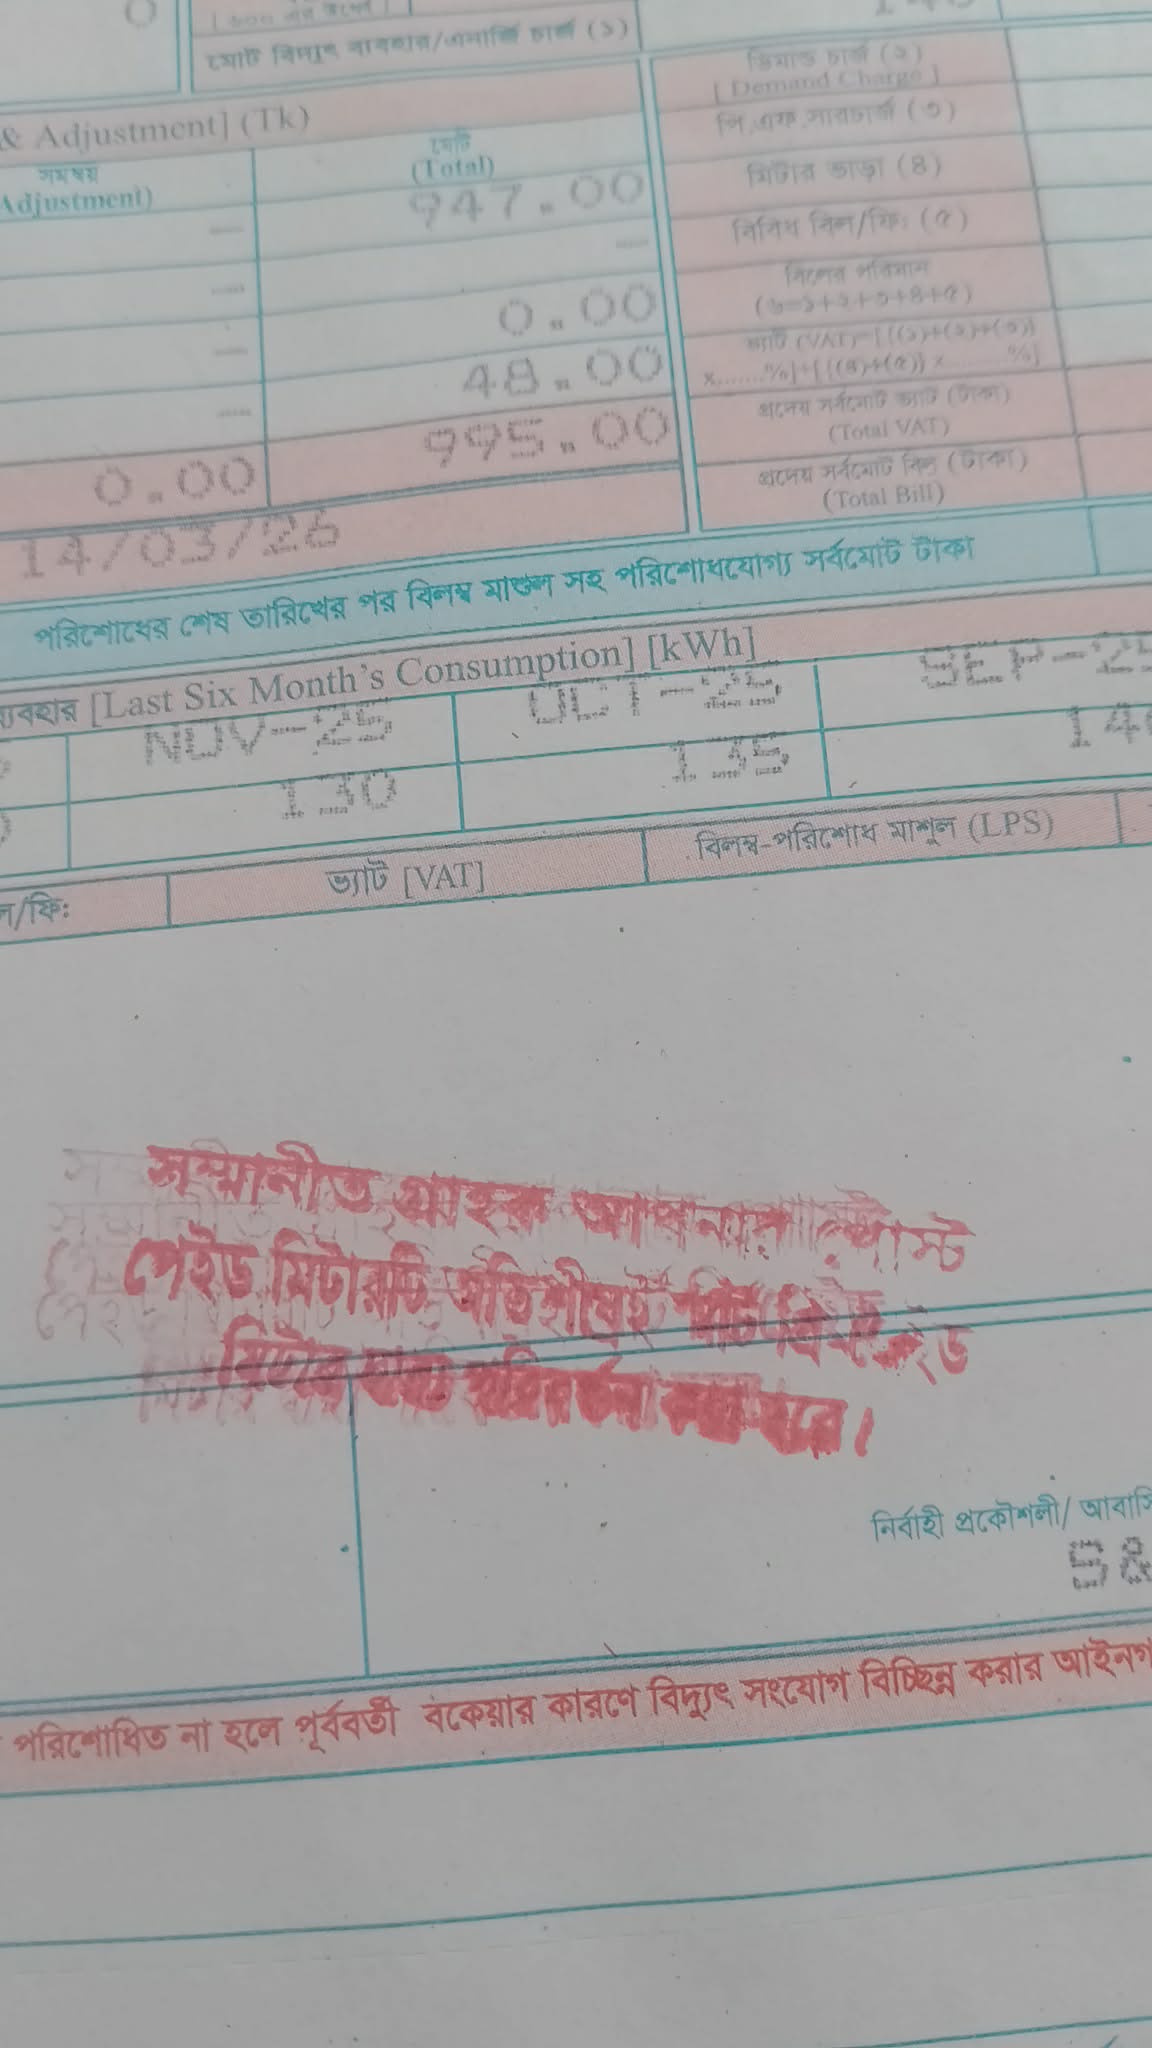 0
মোট বিদ্যুৎ ব্যবহার/এনার্জি চার্জ (১)
ডিমান্ড চার্জ (২)
[ Demand Charge ]
& Adjustment] (Tk)
পি.এফ.সারচার্জ (৩)
সমন্বয়
Adjustment)
মোট
(Total)
947.00
মিটার ভাড়া (৪)
বিবিধ বিল/ফি: (৫)
0.00
বিলের পরিমান
(৬=১+২+৩+৪+৫)
48.00
ভ্যাট (VAT)=[{(১)+(২)+(৩)}
x.......%]+[{(৪)+(৫)} x.........%]
995.00
প্রদেয় সর্বমোট ভ্যাট (টাকা)
(Total VAT)
0.00
প্রদেয় সর্বমোট বিল (টাকা)
(Total Bill)
14/03/26
পরিশোধের শেষ তারিখের পর বিলম্ব মাশুল সহ পরিশোধযোগ্য সর্বমোট টাকা
[Last Six Month's Consumption] [kWh]
NOV-25 OCT-25 SEP-25
130 135
ভ্যাট [VAT] বিলম্ব-পরিশোধ মাশুল (LPS)
/ফি:
সম্মানীত গ্রাহক আপনার পোস্ট
পেইড মিটারটি অতিশীঘ্রই প্রি পেইড
মিটার দ্বারা পরিবর্তন করা হবে।
নির্বাহী প্রকৌশলী/
S&
পরিশোধিত না হলে পূর্ববর্তী বকেয়ার কারণে বিদ্যুৎ সংযোগ বিচ্ছিন্ন করার